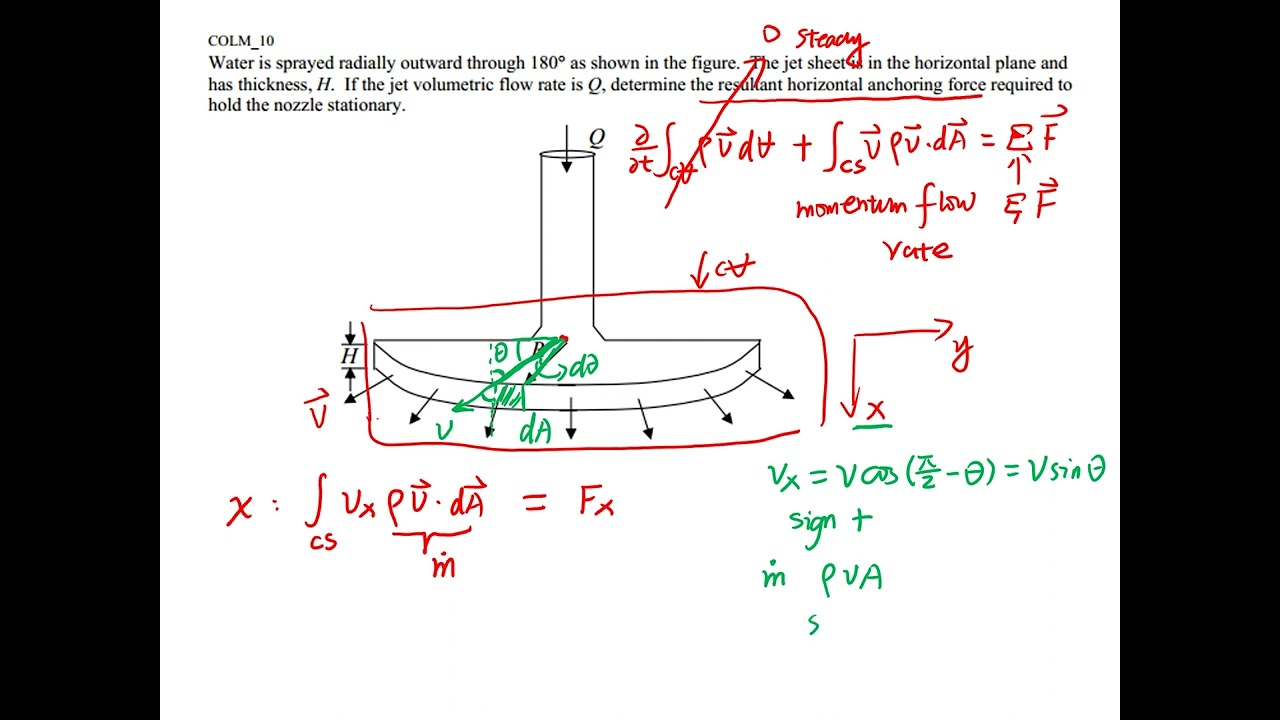 COLM_10
Water is sprayed radially outward through 180° as shown in the figure. The jet sheet is in the horizontal plane and
has thickness, H. If the jet volumetric flow rate is Q, determine the resultant horizontal anchoring force required to
hold the nozzle stationary.
0 steady
Q
∂/∂t ∫_CV ρV⃗ dV + ∫_CS V⃗ ρV⃗·dA⃗ = ΣF⃗
momentum flow ΣF⃗
rate
CV
H
θ
R
dθ
V⃗
V
dA
y
x
x : ∫_CS Vx ρV⃗·dA⃗ = Fx
ṁ
Vx = V cos(π/2 - θ) = V sin θ
sign +
ṁ ρVA
s